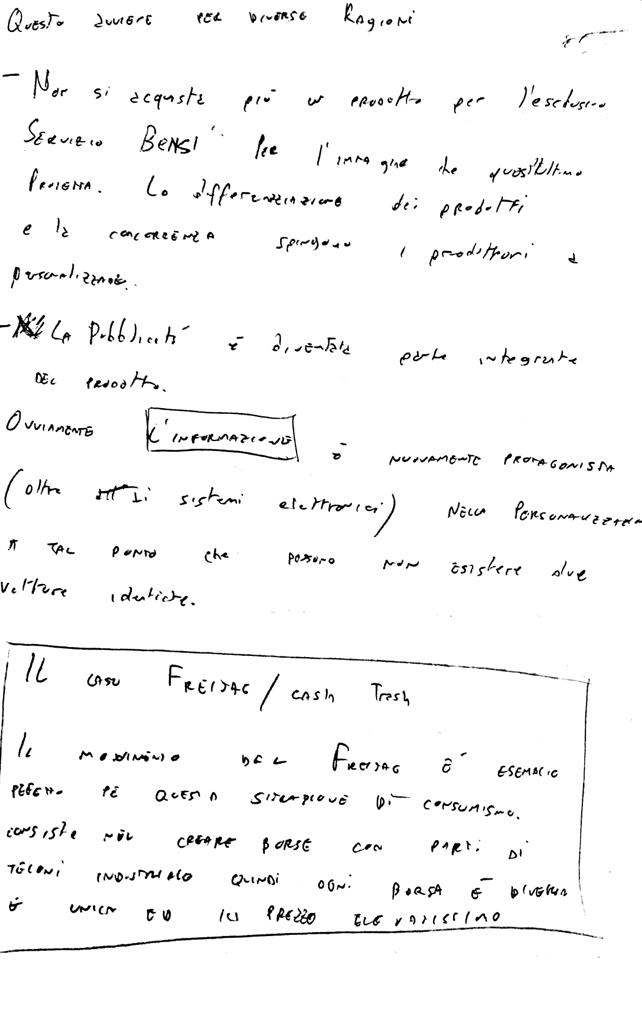 Questo avviene per diverse Ragioni
- Non si acquista più un prodotto per l'esclusivo
Servizio Bensì per l'immagine che quest'ultimo
Proietta. Lo differenziazione dei prodotti
e la concorrenza spingono i produttori a
personalizzare.
- La Pubblicità è diventata parte integrante
del prodotto.
Ovviamente L'informazione è nuovamente protagonista
(oltre ai sistemi elettronici) nella Personalizzazione
a tal punto che possono non esistere due
vetture identiche.
Il caso Freitag / cash Trash
Il movimento del Freitag è esempio
perfetto di questa situazione di consumismo.
consiste nel creare borse con parti di
teloni industriali quindi ogni borsa è diversa
è unica ed il prezzo elevatissimo